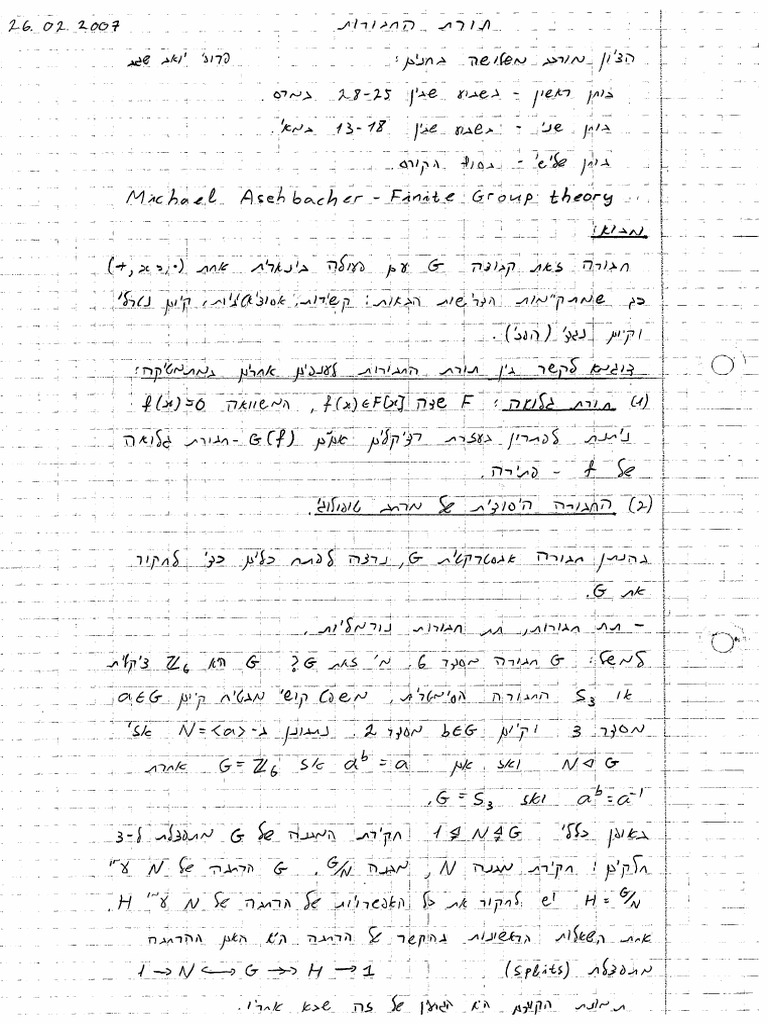 26.02.2007 תורת החבורות
הציון מורכב משלושה בחנים: פרופ' יואב שגב
בוחן ראשון - בשבוע שבין 28-25 במרס.
בוחן שני - בשבוע שבין 13-18 במאי.
בוחן שלישי - בסוף הקורס.
Michael Aschbacher - Finite Group theory
מבוא:
חבורה זאת קבוצה G עם פעולה בינארית אחת
כך שמתקיימות הדרישות הבאות: סגירות, אסוציאטיביות, קיום נטרלי
וקיום נגדי (הפכי).
דוגמא לקשר בין תורת החבורות לענפים אחרים במתמטיקה:
(1) תורת גלואה: F שדה f(x)∈F[x], המשוואה f(x)=0
ניתנת לפתרון בעזרת רדיקלים אמ"מ G(f)-חבורת גלואה
של f - פתירה.
(2) החבורה היסודית של מרחב טופולוגי.
בהנתן חבורה אבסטרקטית G, נרצה לפתח כלים כדי לחקור
את G.
- תת חבורות, תת חבורות נורמליות.
למשל: G חבורה מסדר 6. מי זאת G? G היא ℤ₆ ציקלית
או S₃ החבורה הסימטרית. משפט קושי מבטיח קיום a∈G
מסדר 3 וקיום b∈G מסדר 2. נתבונן ב-N=<a> אזי
N⊲G ואז אם a^b=a אז G=ℤ₆ אחרת
a^b=a⁻¹ ואז G=S₃.
באופן כללי 1⋬N⋬G חקירת המבנה של G מתפצלת ל-3
חלקים: חקירת מבנה N, מבנה G/N, G הרחבה של N ע"י
H=G/N יש לחקור את כל האפשרויות של הרחבה של N ע"י H.
אחת השאלות הראשונות בהקשר של הרחבה היא האם ההרחבה
מתפצלת (splits) 1→N↪G↠H→1
תמונת הקודם היא הגרעין של זה שבא אחריו.